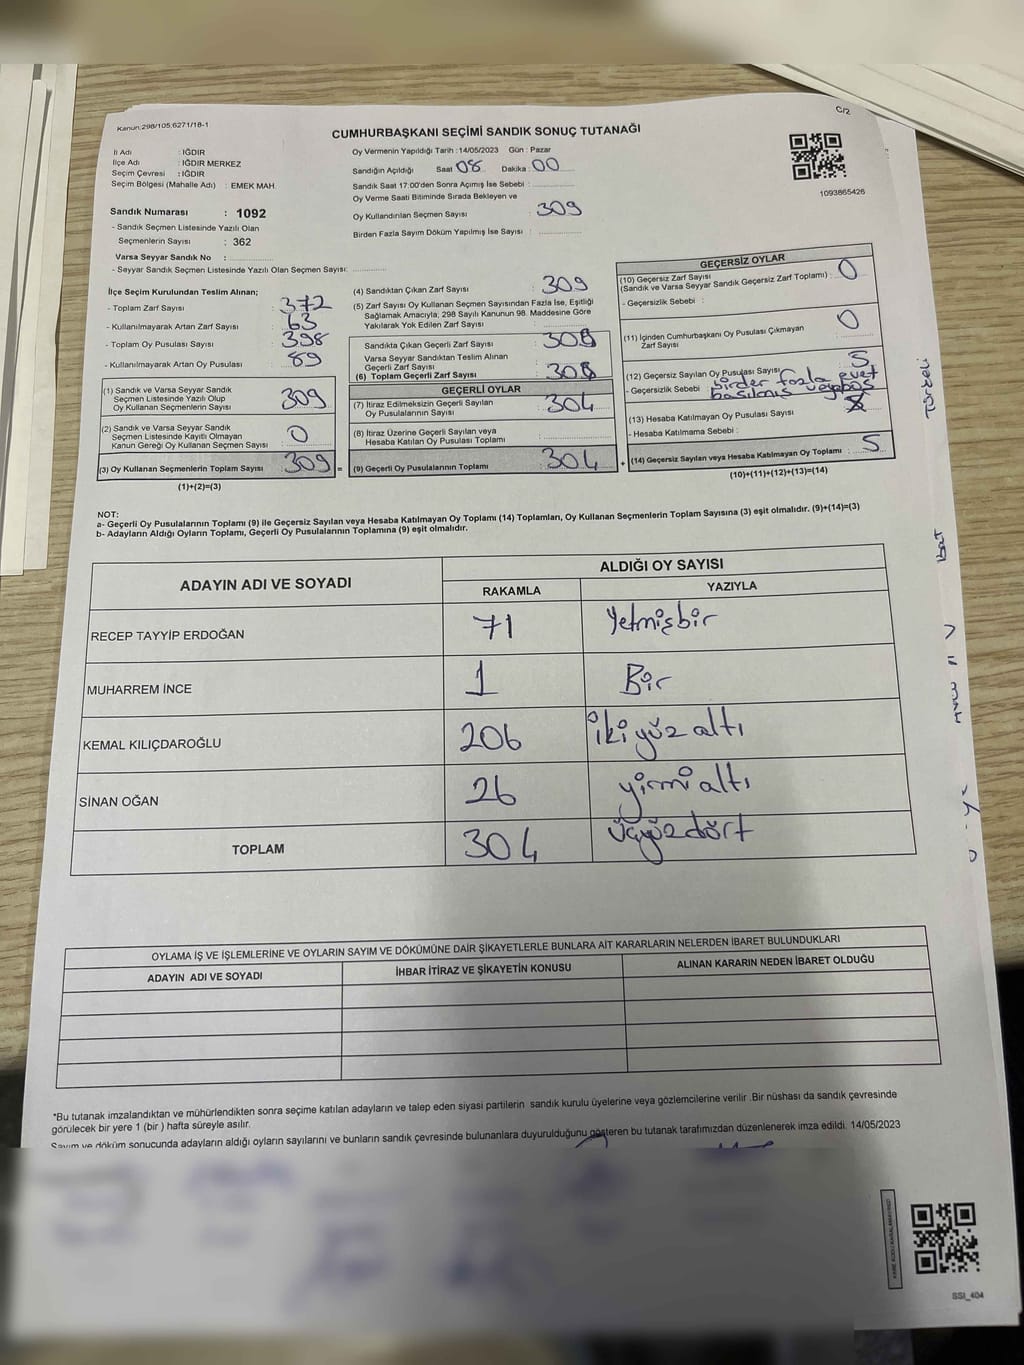 C/2
Kanun:298/105,6271/18-1
CUMHURBAŞKANI SEÇİMİ SANDIK SONUÇ TUTANAĞI
1093865426
İl Adı : IĞDIR
İlçe Adı : IĞDIR MERKEZ
Seçim Çevresi : IĞDIR
Seçim Bölgesi (Mahalle Adı) : EMEK MAH.
Sandık Numarası : 1092
- Sandık Seçmen Listesinde Yazılı Olan
Seçmenlerin Sayısı : 362
Varsa Seyyar Sandık No :
- Seyyar Sandık Seçmen Listesinde Yazılı Olan Seçmen Sayısı:
Oy Vermenin Yapıldığı Tarih : 14/05/2023 Gün : Pazar
Sandığın Açıldığı Saat 08 Dakika : 00
Sandık Saat 17:00'den Sonra Açımış İse Sebebi :
Oy Verme Saati Bitiminde Sırada Bekleyen ve
Oy Kullandırılan Seçmen Sayısı : 309
Birden Fazla Sayım Döküm Yapılmış İse Sayısı :
İlçe Seçim Kurulundan Teslim Alınan;
- Toplam Zarf Sayısı : 372
- Kullanılmayarak Artan Zarf Sayısı : 63
- Toplam Oy Pusulası Sayısı : 398
- Kullanılmayarak Artan Oy Pusulası : 89
(1) Sandık ve Varsa Seyyar Sandık
Seçmen Listesinde Yazılı Olup
Oy Kullanan Seçmenlerin Sayısı : 309
(2) Sandık ve Varsa Seyyar Sandık
Seçmen Listesinde Kayıtlı Olmayan
Kanun Gereği Oy Kullanan Seçmen Sayısı : 0
(3) Oy Kullanan Seçmenlerin Toplam Sayısı : 309 =
(1)+(2)=(3)
(4) Sandıktan Çıkan Zarf Sayısı : 309
(5) Zarf Sayısı Oy Kullanan Seçmen Sayısından Fazla İse, Eşitliği
Sağlamak Amacıyla; 298 Sayılı Kanunun 98. Maddesine Göre
Yakılarak Yok Edilen Zarf Sayısı :
Sandıkta Çıkan Geçerli Zarf Sayısı :
Varsa Seyyar Sandıktan Teslim Alınan
Geçerli Zarf Sayısı :
(6) Toplam Geçerli Zarf Sayısı :
GEÇERLİ OYLAR
(7) İtiraz Edilmeksizin Geçerli Sayılan
Oy Pusulalarının Sayısı : 304
(8) İtiraz Üzerine Geçerli Sayılan veya
Hesaba Katılan Oy Pusulası Toplamı :
(9) Geçerli Oy Pusulalarının Toplamı : 304 +
GEÇERSİZ OYLAR
(10) Geçersiz Zarf Sayısı
(Sandık ve Varsa Seyyar Sandık Geçersiz Zarf Toplamı) : 0
- Geçersizlik Sebebi :
(11) İçinden Cumhurbaşkanı Oy Pusulası Çıkmayan
Zarf Sayısı : 0
(12) Geçersiz Sayılan Oy Pusulası Sayısı : 5
- Geçersizlik Sebebi : birden fazla evet
basılmış veya boş
(13) Hesaba Katılmayan Oy Pusulası Sayısı
- Hesaba Katılmama Sebebi :
(14) Geçersiz Sayılan veya Hesaba Katılmayan Oy Toplamı : 5
(10)+(11)+(12)+(13)=(14)
NOT:
a- Geçerli Oy Pusulalarının Toplamı (9) ile Geçersiz Sayılan veya Hesaba Katılmayan Oy Toplamı (14) Toplamları, Oy Kullanan Seçmenlerin Toplam Sayısına (3) eşit olmalıdır. (9)+(14)=(3)
b- Adayların Aldığı Oyların Toplamı, Geçerli Oy Pusulalarının Toplamına (9) eşit olmalıdır.
ADAYIN ADI VE SOYADI
ALDIĞI OY SAYISI
RAKAMLA YAZIYLA
RECEP TAYYİP ERDOĞAN 71 Yetmişbir
MUHARREM İNCE 1 Bir
KEMAL KILIÇDAROĞLU 206 iki yüz altı
SİNAN OĞAN 26 yirmi altı
TOPLAM 304 üçyüz dört
OYLAMA İŞ VE İŞLEMLERİNE VE OYLARIN SAYIM VE DÖKÜMÜNE DAİR ŞİKAYETLERLE BUNLARA AİT KARARLARIN NELERDEN İBARET BULUNDUKLARI
ADAYIN ADI VE SOYADI İHBAR İTİRAZ VE ŞİKAYETİN KONUSU ALINAN KARARIN NEDEN İBARET OLDUĞU
*Bu tutanak imzalandıktan ve mühürlendikten sonra seçime katılan adayların ve talep eden siyasi partilerin sandık kurulu üyelerine veya gözlemcilerine verilir .Bir nüshası da sandık çevresinde
görülecek bir yere 1 (bir ) hafta süreyle asılır.
Sayım ve döküm sonucunda adayların aldığı oyların sayılarını ve bunların sandık çevresinde bulunanlara duyurulduğunu gösteren bu tutanak tarafımızdan düzenlenerek imza edildi. 14/05/2023
SSI_404